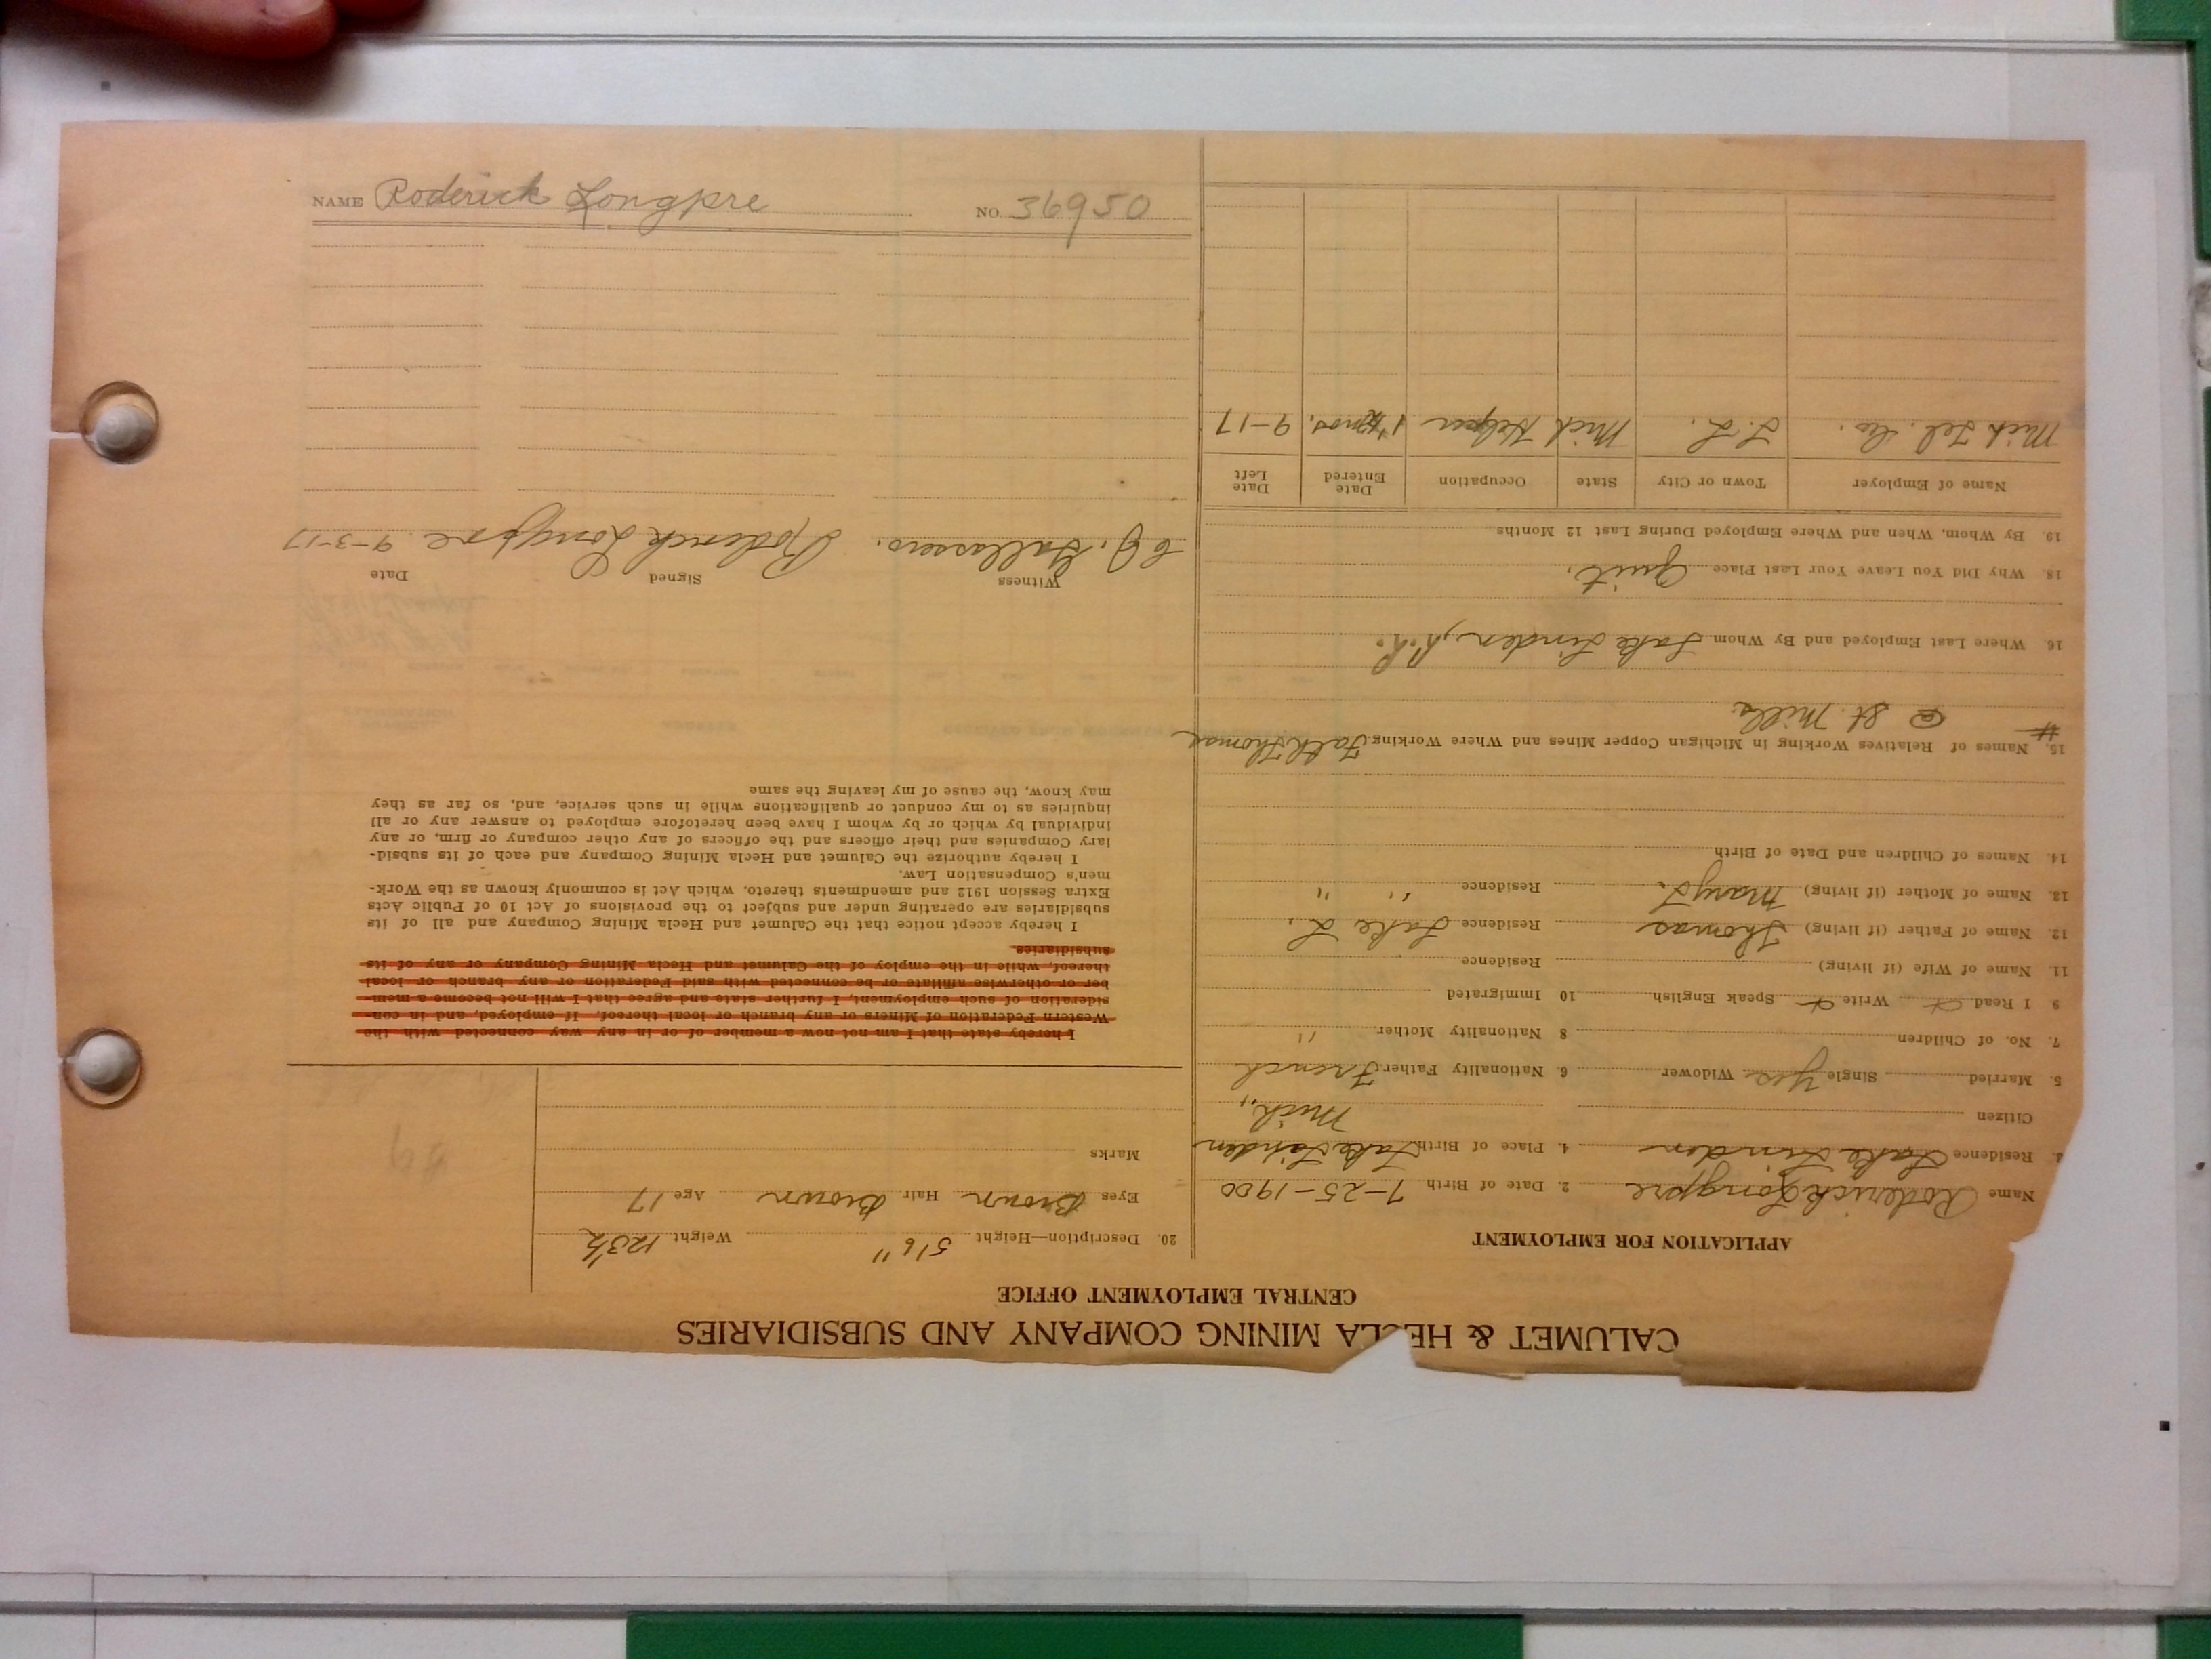 CALUMET & HECLA MINING COMPANY AND SUBSIDIARIES
CENTRAL EMPLOYMENT OFFICE
APPLICATION FOR EMPLOYMENT
Name Roderick Longpre 2. Date of Birth 7-25-1900
Residence Lake Linden 4. Place of Birth Lake Linden
Citizen Mich.,
5. Married Single Yes Widower 6. Nationality Father French
7. No. of Children 8 Nationality Mother "
9 I Read Write Speak English 10 Immigrated
11. Name of Wife (if living) Residence
12. Name of Father (if living) Thomas Residence Lake L.
13. Name of Mother (if living) Mary L. Residence " "
14. Names of Children and Date of Birth
15. Names of Relatives Working in Michigan Copper Mines and Where Working Fath Thomas
# @ St. Mills
16. Where Last Employed and By Whom Lake Linden,
18. Why Did You Leave Your Last Place Quit.
19. By Whom, When and Where Employed During Last 12 Months
Name of Employer Town or City State Occupation Date Entered Date Left
Mich Tel. Co. L. L. Mich Helper 9-17
20. Description—Height 5'6" Weight 123½
Eyes Brown Hair Brown Age 17
Marks
I hereby state that I am not now a member of or in any way connected with the
Western Federation of Miners or any branch or local thereof. If employed, and in con-
sideration of such employment, I further state and agree that I will not become a mem-
ber or otherwise affiliate or be connected with said Federation or any branch or local
thereof, while in the employ of the Calumet and Hecla Mining Company or any of its
subsidiaries.
I hereby accept notice that the Calumet and Hecla Mining Company and all of its
subsidiaries are operating under and subject to the provisions of Act 10 of Public Acts
Extra Session 1912 and amendments thereto, which Act is commonly known as the Work-
men's Compensation Law.
I hereby authorize the Calumet and Hecla Mining Company and each of its subsid-
iary Companies and their officers and the officers of any other company or firm, or any
individual by which or by whom I have been heretofore employed to answer any or all
inquiries as to my conduct or qualifications while in such service, and, so far as they
may know, the cause of my leaving the same
Witness Signed Date
Roderick Longpre 9-3-17
NAME Roderick Longpre NO. 36950